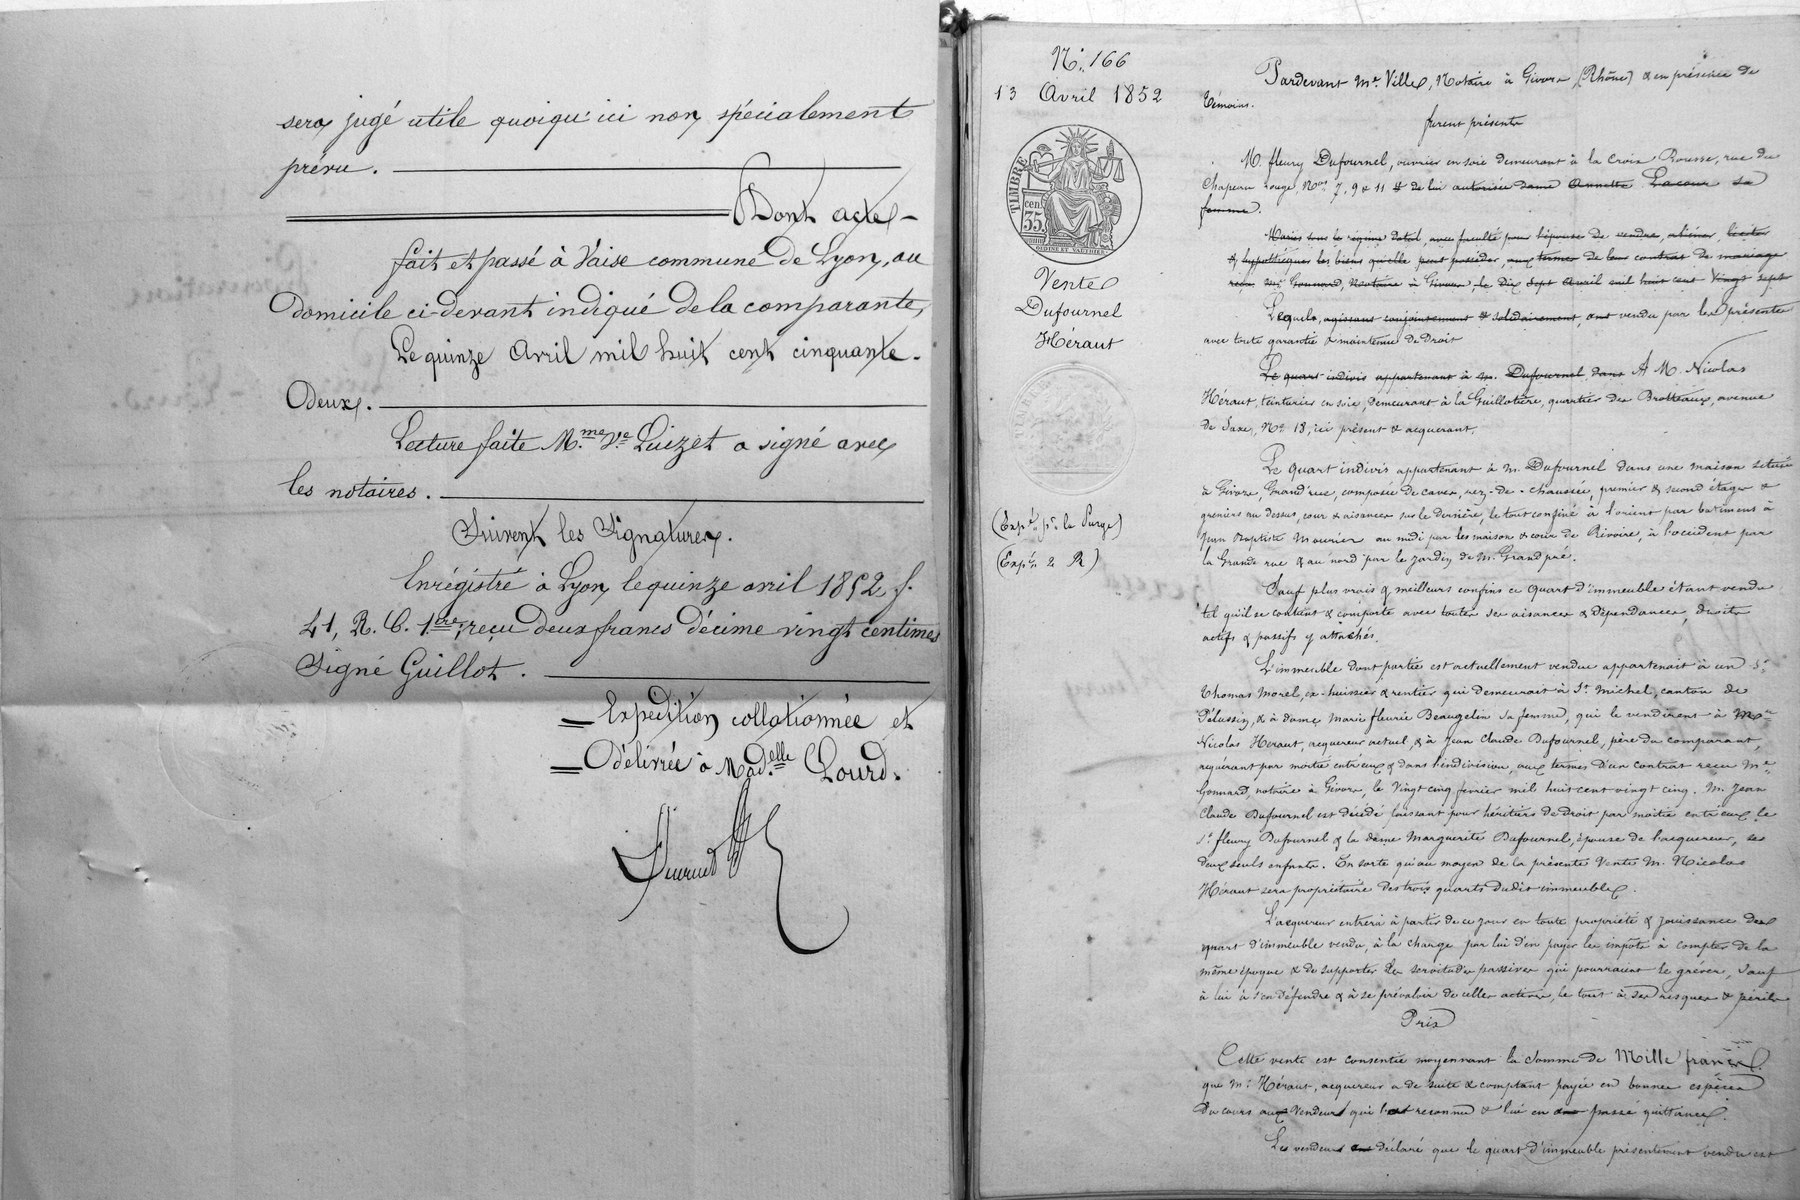 sera jugé utile quoiqu'ici non spécialement
prévu.
Dont acte
fait et passé à Vaise commune de Lyon, au
domicile ci-devant indiqué de la comparante,
Le quinze Avril mil huit cent cinquante
Deux.
Lecture faite M.me Ve Luizet a signé avec
les notaires.
Suivent les Signatures.
Enrégistré à Lyon le quinze avril 1852, f.
41, R. C. 1re, reçu deux francs décime vingt centimes
Signé Guillot.
Expédition collationnée et
Délivrée à Mad.elle Lourd.
N.° 166
13 Avril 1852
TIMBRE
35 cen.
Vente
Dufournel
Héraut
(Exp.é pr la Purge)
(Exp.é 2 R)
Pardevant Me Ville, Notaire à Givors (Rhône) & en présence de
témoins.
furent présents
M. fleury Dufournel, ouvrier en soie demeurant à la Croix Rousse, rue du
Chapeau rouge, Nos 7, 9 & 11 & de lui autorisée dame Annette Lacour sa
femme.
Mariés sous le régime dotal, avec faculté pour l'épouse de vendre, aliéner, liciter
& hypothéquer les biens qu'elle peut posséder, aux termes de leur contrat de mariage
reçu Me Gonnard, Notaire à Givors, le Dix Sept Avril mil huit cent Vingt sept
Lequel, agissant conjointement & solidairement, ont vendu par les présentes
avec toute garantie & maintenue de Droit
Le quart indivis appartenant à M. Dufournel, dans A M. Nicolas
Héraut, teinturier en soie, demeurant à la Guillotière, quartier des Brotteaux, avenue
de Saxe, No 18, ici présent & acquérant,
Le quart indivis appartenant à M. Dufournel dans une maison située
à Givors, Grand'rue, composée de caves, rez-de-chaussée, premier & second étages &
greniers au dessus, cour & aisances sur le derrière, le tout confiné à l'orient par batiments à
Jean Baptiste Mourier au midi par les maison & cour de Rivoire, à l'occident par
la Grande rue & au nord par le jardin de M. Grandpré.
Sauf plus vrais & meilleurs confins ce Quart d'immeuble étant vendu
tel qu'il se contient & comporte avec toutes ses aisances & dépendances, droits
actifs & passifs y attachés.
L'immeuble dont partie est actuellement vendue appartenait à un Sr
Thomas Morel, ex-huissier & rentier qui demeurait à St Michel, canton de
Pélussin, & à dame Marie fleurie Beaugelin sa femme, qui le vendirent à Mr
Nicolas Héraut, acquereur actuel, & à Jean Claude Dufournel, père du comparant,
acquérant par moitié entr'eux & dans l'indivision, aux termes d'un contrat reçu Me
Gonnard, notaire à Givors, le Vingt cinq février mil huit cent vingt cinq. M. Jean
Claude Dufournel est décédé laissant pour héritiers de Droit par moitié entr'eux le
Sr fleury Dufournel & la dame Marguerite Dufournel, épouse de l'acquereur, ses
deux seuls enfants. En sorte qu'au moyen de la présente Vente M. Nicolas
Héraut sera propriétaire des trois quarts dudit immeuble.
L'acquereur entrera à partir de ce jour en toute propriété & jouissance du
quart d'immeuble vendu, à la charge par lui d'en payer les impôts à compter de la
même époque & de supporter les servitudes passives qui pourraient le gréver, sauf
à lui à s'en défendre & à se prévaloir de celles actives, le tout à ses risques & périls
Prix
Cette vente est consentie moyennant la somme de Mille francs
que M. Héraut, acquereur a de suite & comptant payée en bonnes espèces
du cours aux Vendeur qui l'a reconnu & lui en passe quittance.
Les vendeur déclaré que le quart d'immeuble présentement vendu est